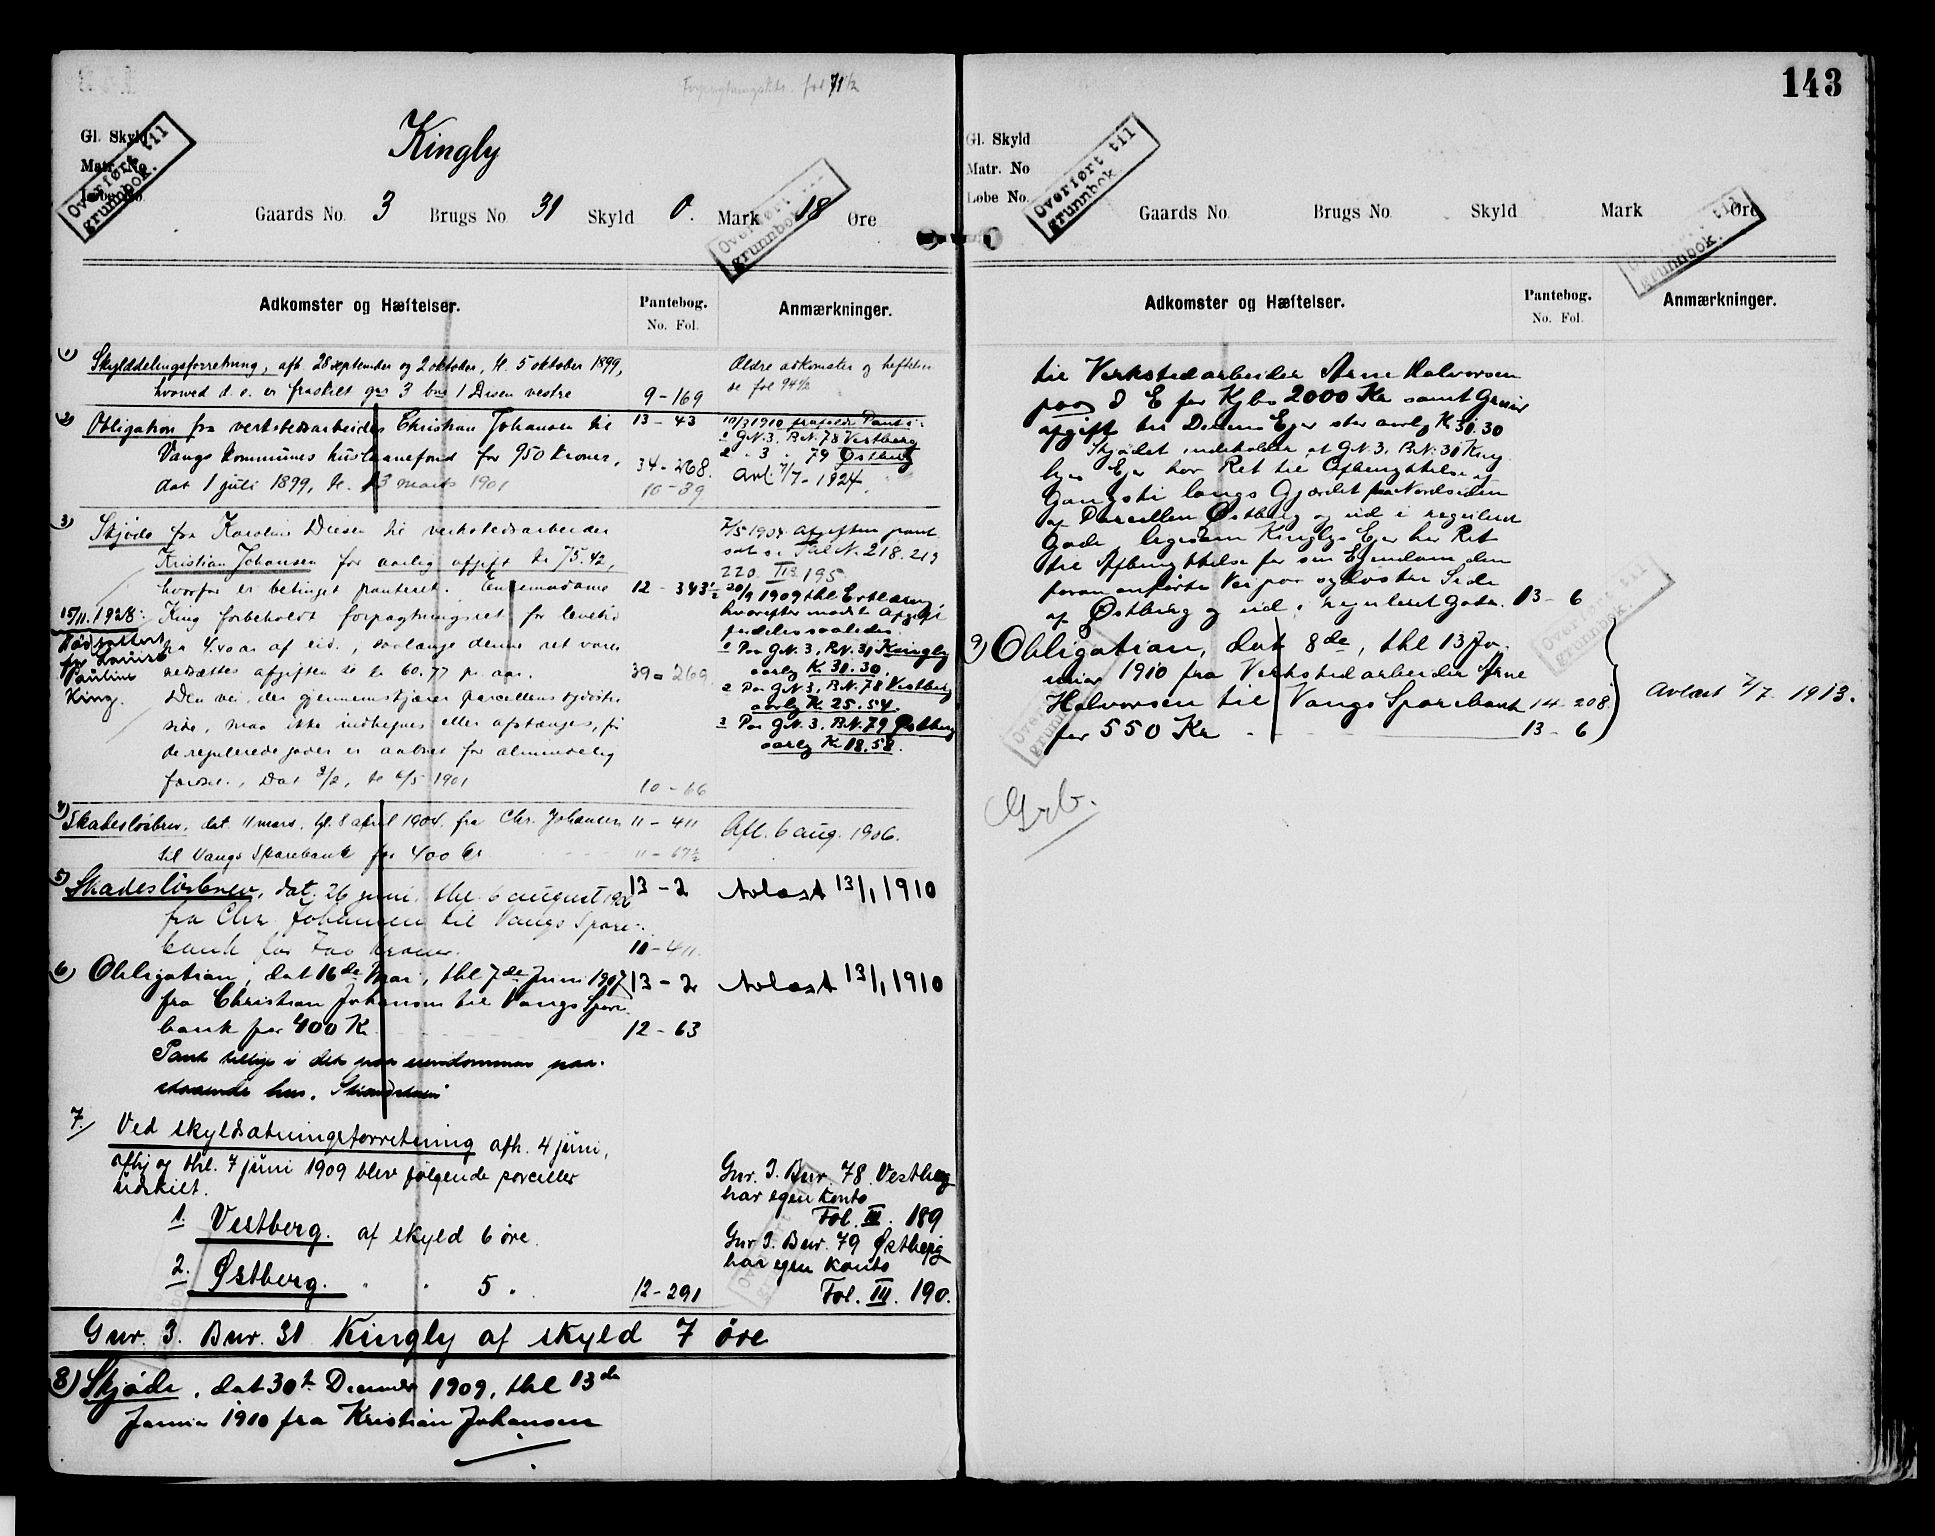 Forpagtningsktr. fol 71½
Kingly
Gl. Skyld
Matr. No
Løbe No.
Overført til
grunnbok.
Gaards No. 3 Brugs No 31 Skyld 0. Mark 18 Øre
Overført til
grunnbok.
Adkomster og Hæftelser.
Pantebog.
No. Fol.
Anmærkninger.
1) Skylddelingsforretning, afh. 28 september og 2 oktober, tl. 5 oktober 1899,
hvorved d. e. er fraskilt gno 3 bno 1 Disen vestre 9-169
Ældre adkomster og heftelser
se fol 94½
2) Obligation fra verkstedsarbeider Christian Johansen til 13-43
Vangs kommunes huslaanefond for 950 kroner, 34-268.
dat 1 juli 1899, tl. 13 marts 1901 10-39
10/3 1910 frafaldt Pant i:
1 G.N. 3, B.N. 78 Vestberg
2 " 3 " 79 Østberg
Avl. 7/7-1924.
3) Skjøde fra Karoline Disen til verkstedsarbeider
Kristian Johansen for aarlig afgift kr 75.42,
hvorfor er betinget panteret. Enkemadame 12-343½
King forbeholdt forpagtningsret for levetid
paa 4.40 ar af eid., saalange denne ret varer
nedsættes afgiften til kr 60.77 pr. aar. 39-269.
Den vei, der gjennemskjærer parcellens sydøstre
side, maa ikke indhegnes eller afstænges, før
de regulerede gader er aabnet for almindelig
færdsel., Dat 3/2, tl 6/5 1901 10-66
15/11. 1928:
Dødsattest
for Louise
Pauline
King.
7/5 1904. afgiften pant
sat se Fol N. 218. 219
220. III 195
20/9 1909 thl Erklæring
hvorefter nævnte Afgift
fordeles saaledes:
1 Paa G.N. 3, B.N. 31 Kingly
aarlig K. 31.30.
2 Paa G.N. 3, B.N. 78 Vestberg
aarlig K. 25.54.
3 Paa G.N. 3, B.N. 79 Østberg
aarlig K 18.58.
4) Skadesløsbrev, dat. 11 mars, tl. 8 april 1904. fra Chr. Johansen 11-411
til Vangs Sparebank for 400 kr 11-67½
Afl. 6 aug. 1906.
5) Skadesløsbrev, dat. 26 juni, thl. 6 august 1906 13-2
fra Chr. Johansen til Vangs Spare-
bank for 700 kroner. 11-411.
Avlæst 13/1 1910
6) Obligation, dat 16de Mai, thl 7de Juni 1907 13-2
fra Christian Johansen til Vangs Spare-
bank for 400 Kr 12-63
Avlæst 13/1 1910
Pant tillige i det paa eiendommen paa-
staaende hus.
7. Ved skyldsætningsforretning afh. 4 juni,
afhj og thl. 7 juni 1909 blev følgende parceller
udskilt.
1. Vestberg. af skyld 6 øre.
2. Østberg. " " 5 " 12-291
Gnr. 3. Bnr. 78. Vestberg
har egen konto
Fol. III. 189
Gnr. 3. Bnr. 79 Østberg
har egen konto
Fol. III. 190.
Gnr. 3. Bnr. 31 Kingly af skyld 7 øre
8) Skjøde, dat 30te December 1909, thl 13de
Januar 1910 fra Kristian Johansen
143
Gl. Skyld
Matr. No
Løbe No.
Overført til
grunnbok.
Gaards No. Brugs No. Skyld Mark Øre
Overført til
grunnbok.
Adkomster og Hæftelser.
Pantebog.
No. Fol.
Anmærkninger.
til Verkstedarbeider Arne Halvorsen
paa d E for Kjbs 2000 Kr samt Grund
afgift til Disens Ejer stor aarlg K 31.30
Skjødet indeholder, at G.N. 3, B.N. 31 King
lys Ejer har Ret til Afbenyttelse af
Gangsti langs Gjærdet paa Nordsiden
af Parcellen Østberg og ud i reguleret
Gade, ligesom Kinglys Ejer har Ret
til Afbenyttelse for sin Ejendom den
foran anførte Vei paa sydøstre Side
af Østberg og ud i reguleret Gade. 13-6
9) Obligation, dat 8de, thl 13 Ja-
nuar 1910 fra Verkstedarbeider Arne
Halvorsen til Vangs Sparebank 14-208
for 550 Kr 13-6
Avlæst 7/7. 1913.
Overført til
grunnbok.
Grb.